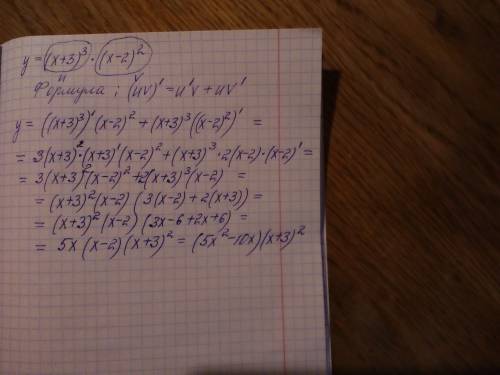 y = (x+3)³ · (x-2)²
u v
Формула: (uv)' = u'v + uv'
y = ((x+3)³)' (x-2)² + (x+3)³ ((x-2)²)' =
= 3(x+3)² · (x+3)' (x-2)² + (x+3)³ · 2(x-2) · (x-2)' =
= 3(x+3)² (x-2)² + 2(x+3)³ (x-2) =
= (x+3)² (x-2) (3(x-2) + 2(x+3)) =
= (x+3)² (x-2) (3x-6+2x+6) =
= 5x (x-2) (x+3)² = (5x²-10x)(x+3)²